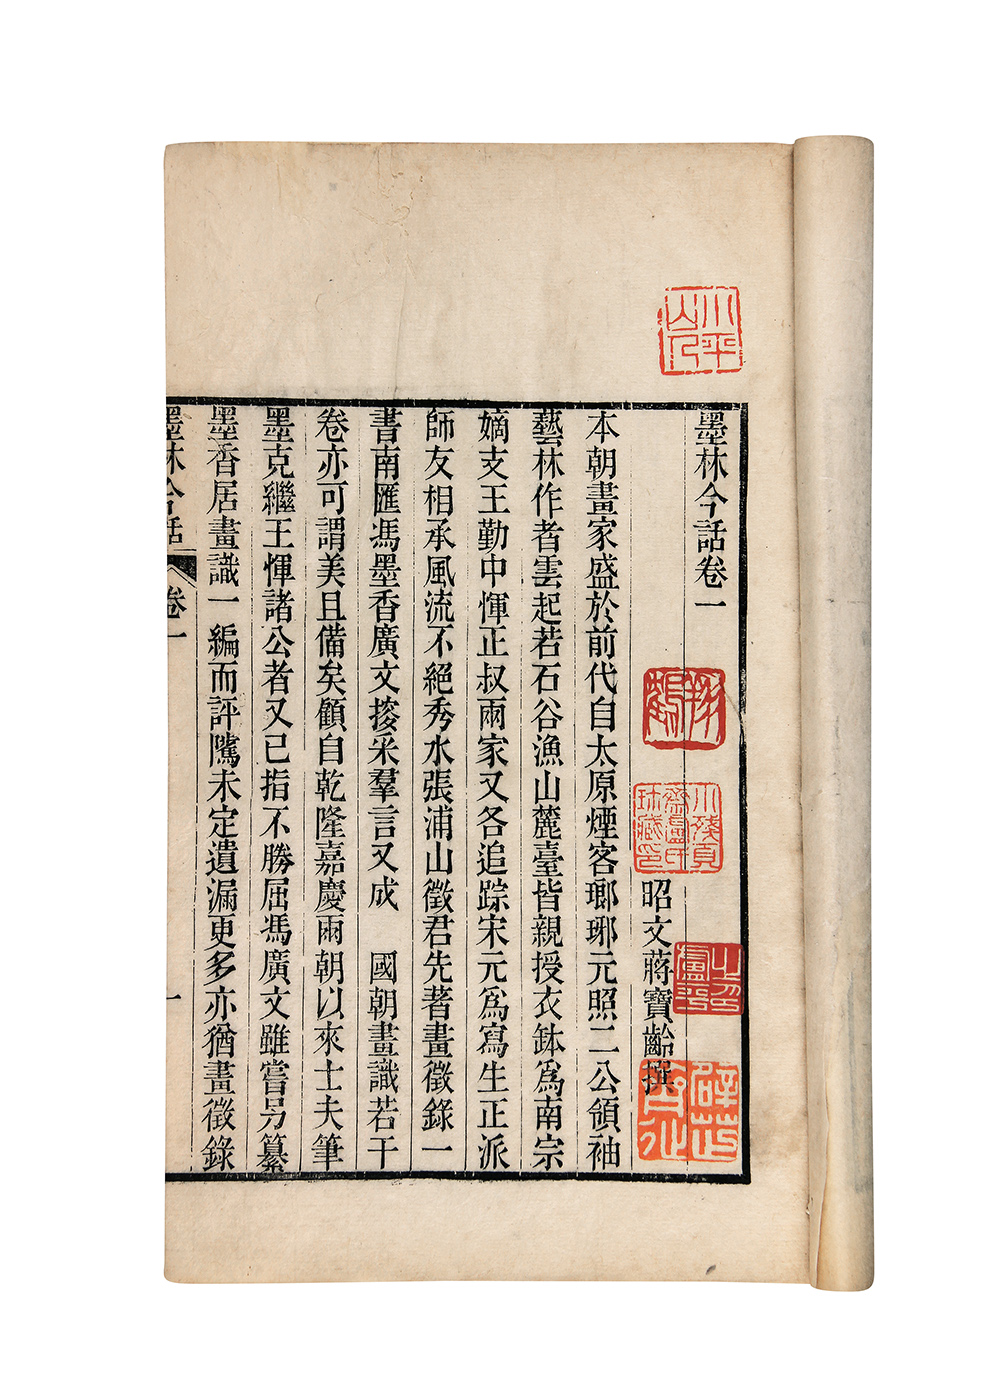 墨林今話卷一
昭文蔣寶齡撰
本朝畫家盛於前代自太原煙客瑯琊元照二公領袖
藝林作者雲起若石谷漁山麓臺皆親授衣鉢爲南宗
嫡支王勤中惲正叔兩家又各追踪宋元爲寫生正派
師友相承風流不絕秀水張浦山徵君先著畫徵錄一
書南匯馮墨香廣文掞采羣言又成 國朝畫識若干
卷亦可謂美且備矣顧自乾隆嘉慶兩朝以來士夫筆
墨克繼王惲諸公者又已指不勝屈馮廣文雖嘗另纂
墨香居畫識一編而評隲未定遺漏更多亦猶畫徵錄
墨林今話 卷一 一